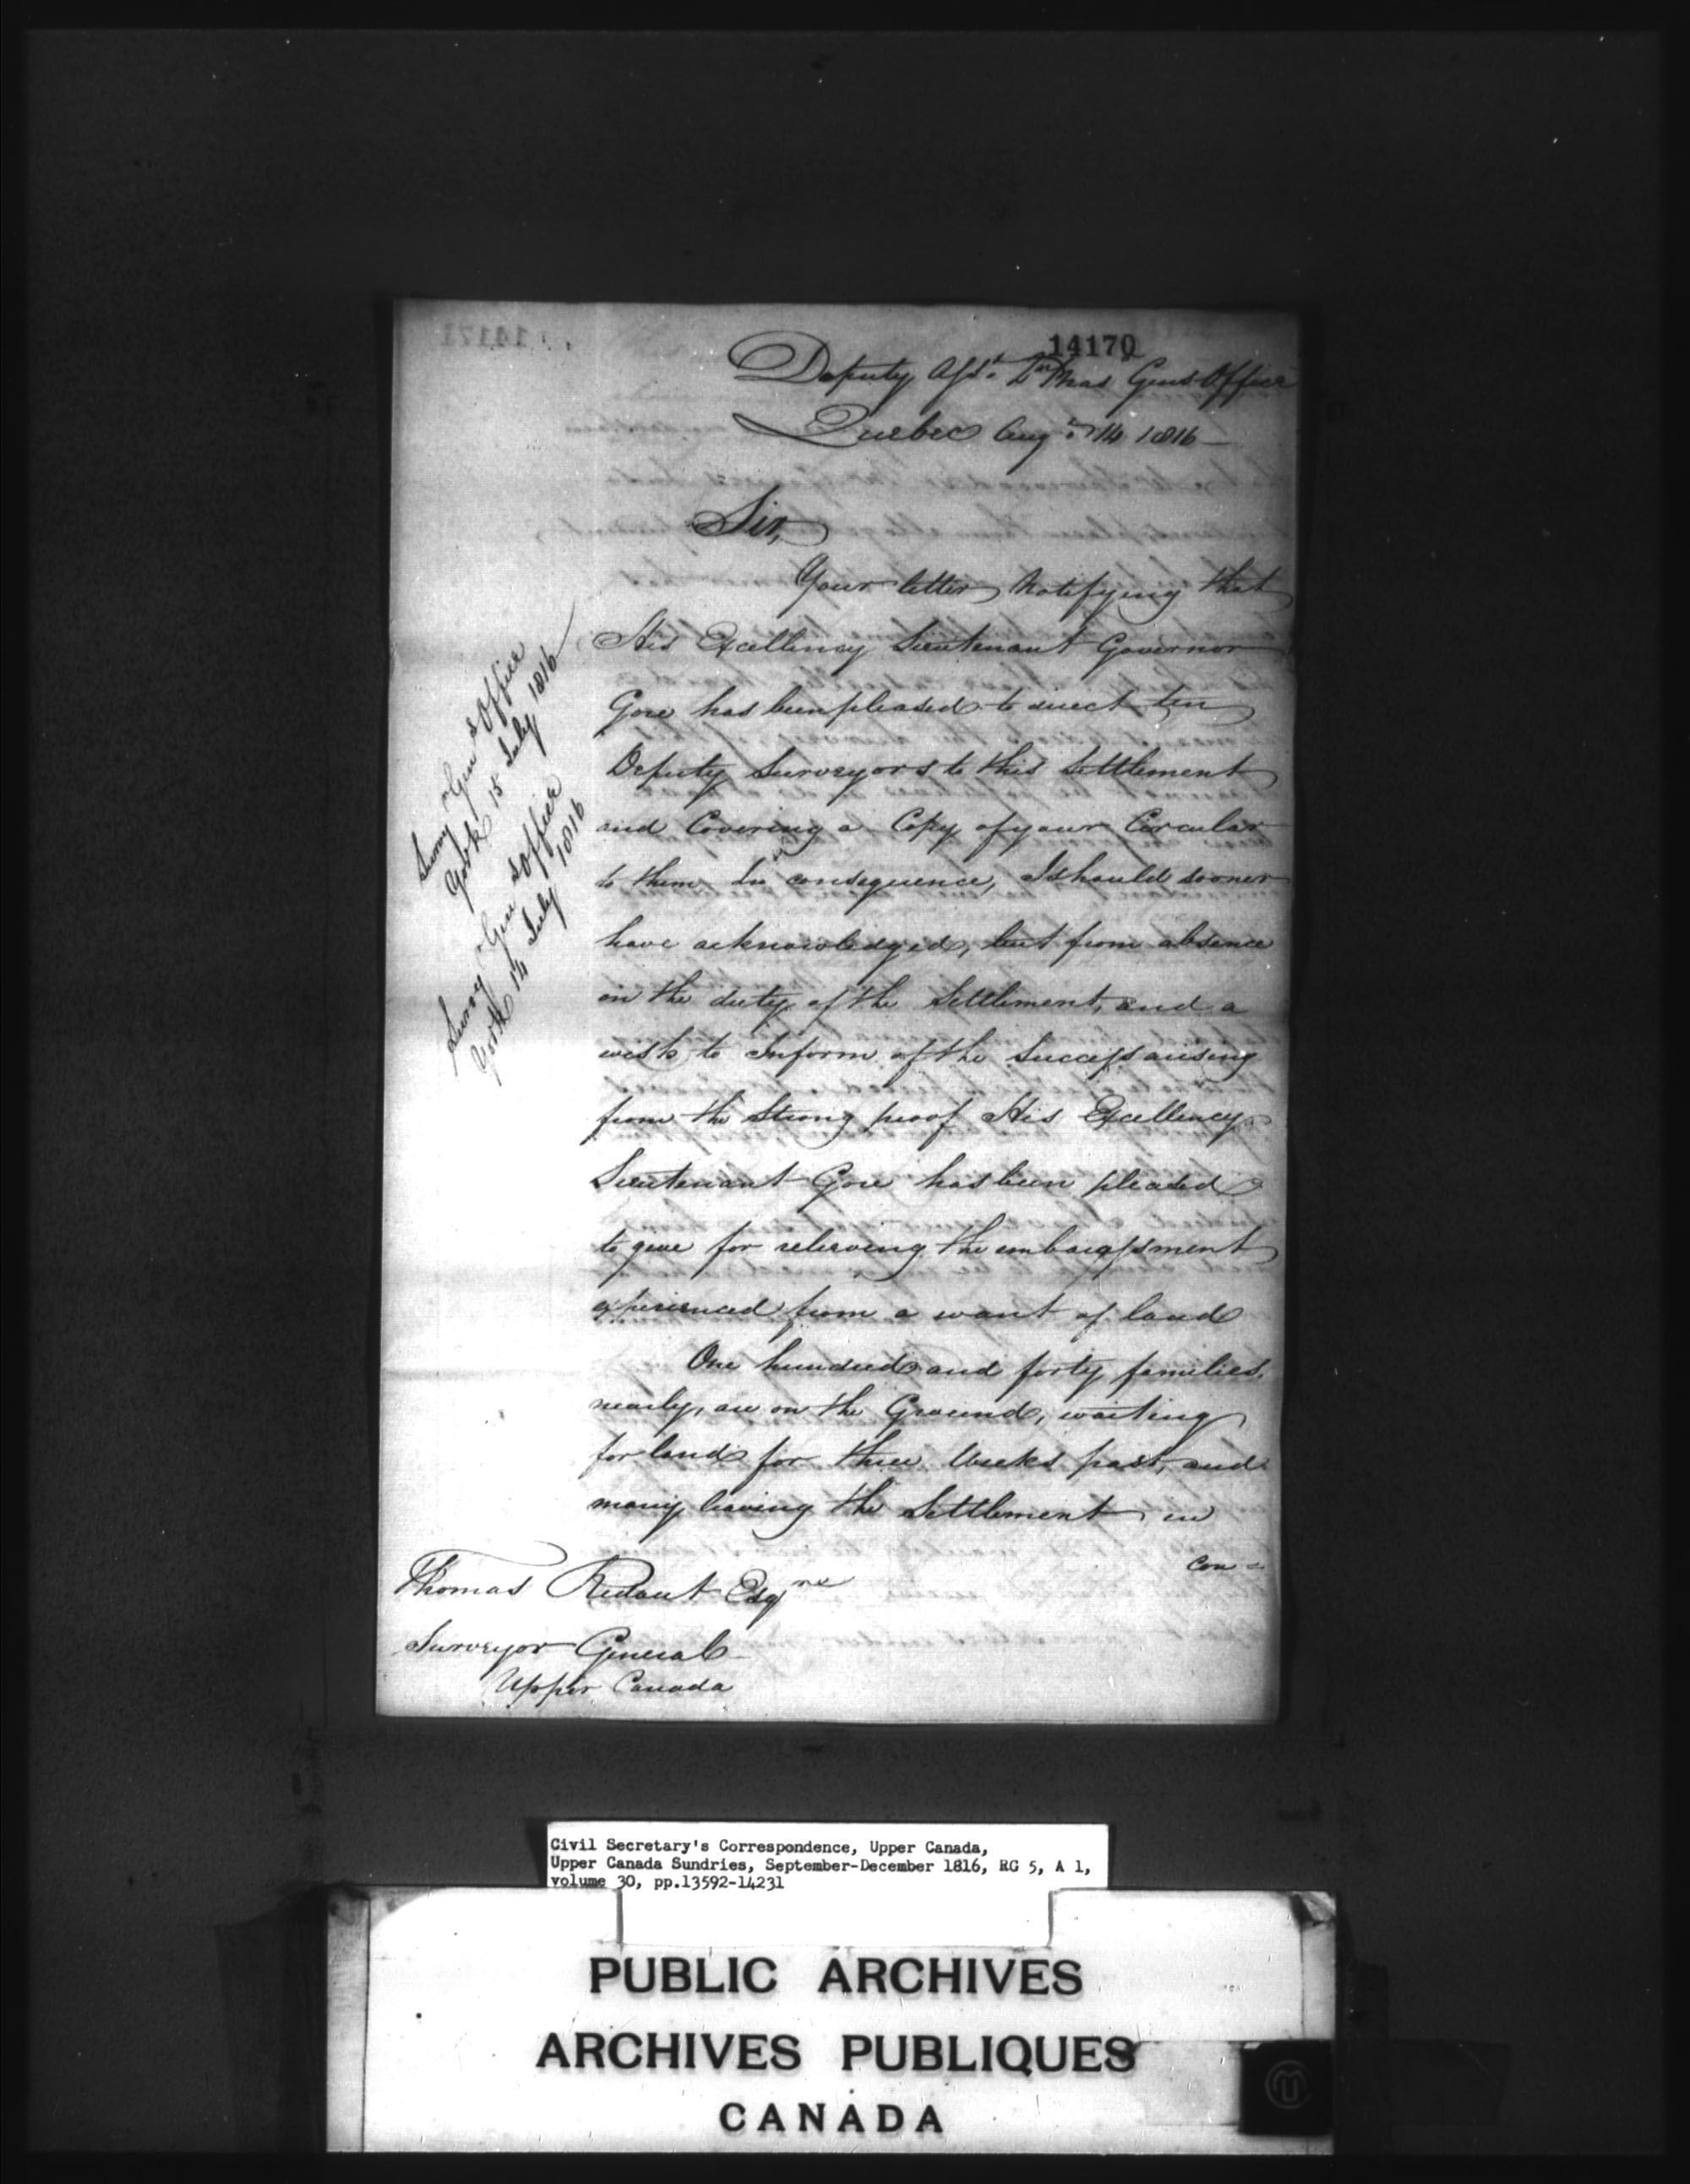 14170
Deputy Asst. Qr. Mas. Genls Office
Quebec Augt. 14 1816
Sir,
Your letter Notifying that
His Excellency Lieutenant Governor
Gore has been pleased to direct ten
Deputy Surveyors to this Settlement
and Covering a Copy of your Circular
to them in consequence, I should sooner
have acknowledged, but from absence
on the duty of the Settlement, and a
wish to Inform of the Success arising
from the Strong proof His Excellency
Lieutenant Gore has been pleased
to give for relieving the embarassment
experienced from a want of land
One hundred and forty families,
nearly, are on the Ground, waiting
for land for three Weeks past, and
many leaving the Settlement in
con=
Survy Genls Office
York 15 July 1816
Survy Genls Office
York 14 July 1816
Thomas Ridout Esqre
Surveyor General
Upper Canada
Civil Secretary's Correspondence, Upper Canada,
Upper Canada Sundries, September-December 1816, RG 5, A 1,
volume 30, pp.13592-14231
PUBLIC ARCHIVES
ARCHIVES PUBLIQUES
CANADA